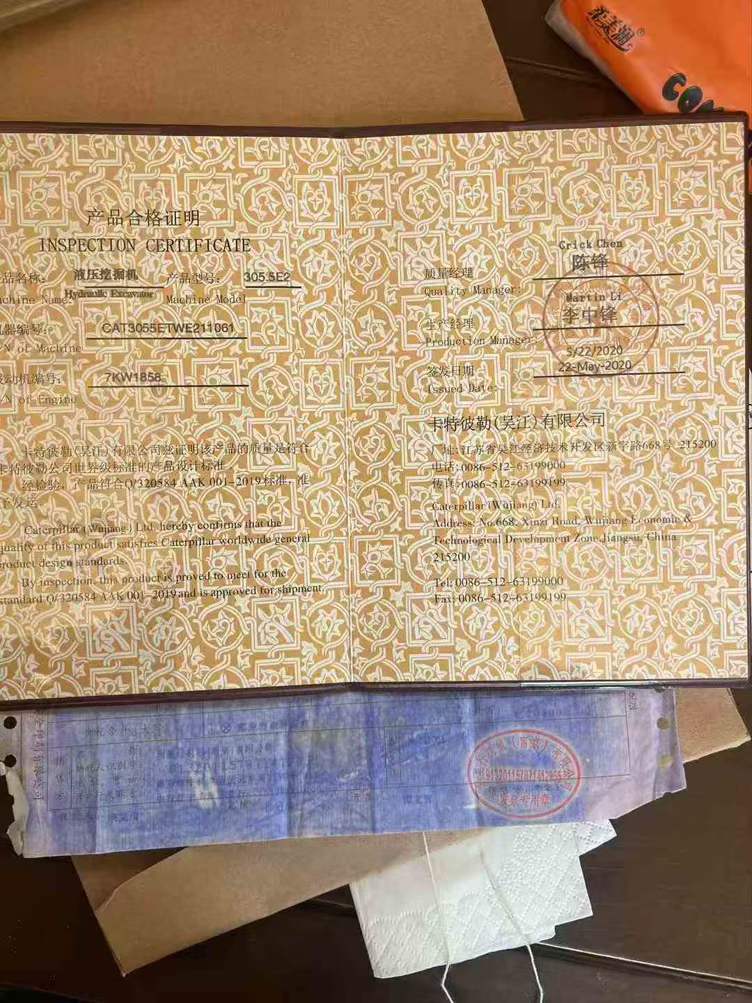 柔美润®
CON
产品合格证明
INSPECTION CERTIFICATE
品名称: 液压挖掘机 产品型号: 305.5E2
achine Name: Hydraulic Excavator Machine Model
机器编号: CAT3055ETWE211061
/N of Machine
发动机编号: 7KW1858
/N of Engine
卡特彼勒(吴江)有限公司兹证明该产品的质量是符合
卡特彼勒公司世界级标准的产品设计标准
经检验, 产品符合Q/320584 AAK 001-2019标准, 准
予发运
Caterpillar (Wujiang) Ltd. hereby confirms that the
quality of this product satisfies Caterpillar worldwide general
product design standards
By inspection, this product is proved to meet for the
standard Q/320584 AAK 001-2019 and is approved for shipment.
Crick Chen
质量经理 陈锋
Quality Manager:
Martin Li
生产经理 李中锋
Production Manager:
5/22/2020
签发日期 22-May-2020
Issued Date:
卡特彼勒(吴江)有限公司
厂址:江苏省吴江经济技术开发区新字路668号 215200
电话:0086-512-63199000
传真:0086-512-63199199
Caterpillar (Wujiang) Ltd.
Address: No.668, Xinzi Road, Wujiang Economic &
Technological Development Zone, Jiangsu, China
215200
Tel: 0086-512-63199000
Fax: 0086-512-63199199